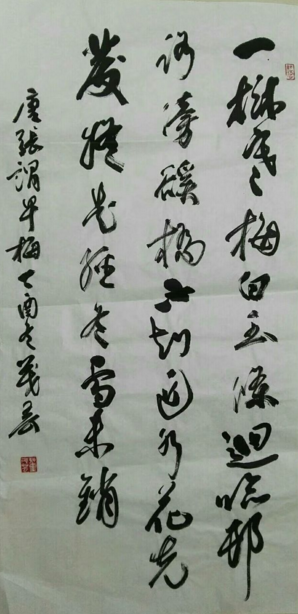 一樹寒梅白玉條迥臨邨
路傍磎橋不知近水花先
發疑是經冬雪未銷
唐張謂早梅丁酉冬